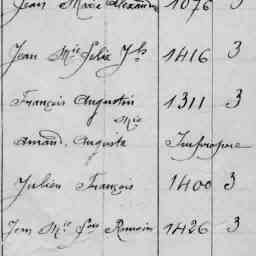 Jean Marie Alexandre 1076 3
Jean Mie Félix Jh 1416 3
François Augustin 1311 3
Mie
Amand. Auguste Impropre
Julien François 1400 3
Jean Mie Fois Romain 1426 3